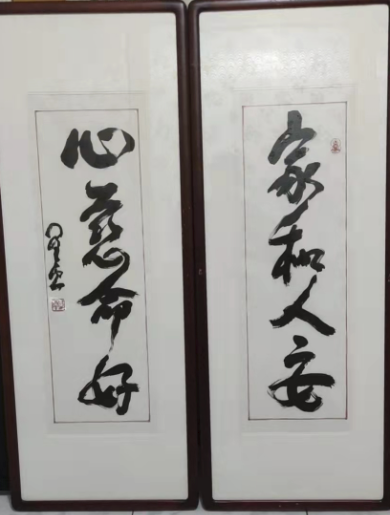 家和人安
心慈命好